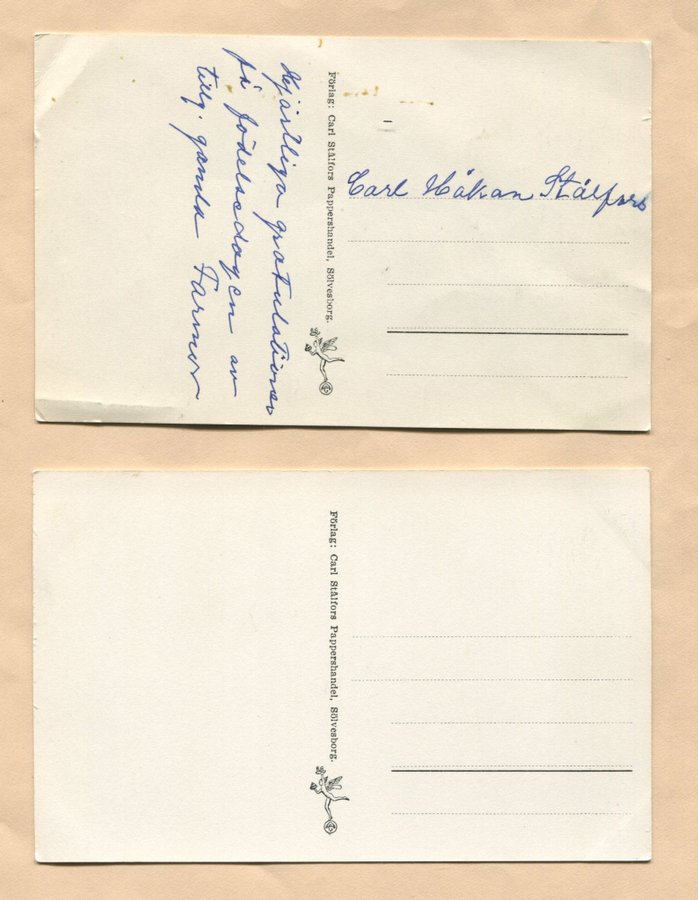 Hjärtliga gratulationer
på födelsedagen av
tillg. gamla Farmor
Förlag: Carl Stålfors Pappershandel, Sölvesborg.
Carl Håkan Stålfors
Förlag: Carl Stålfors Pappershandel, Sölvesborg.